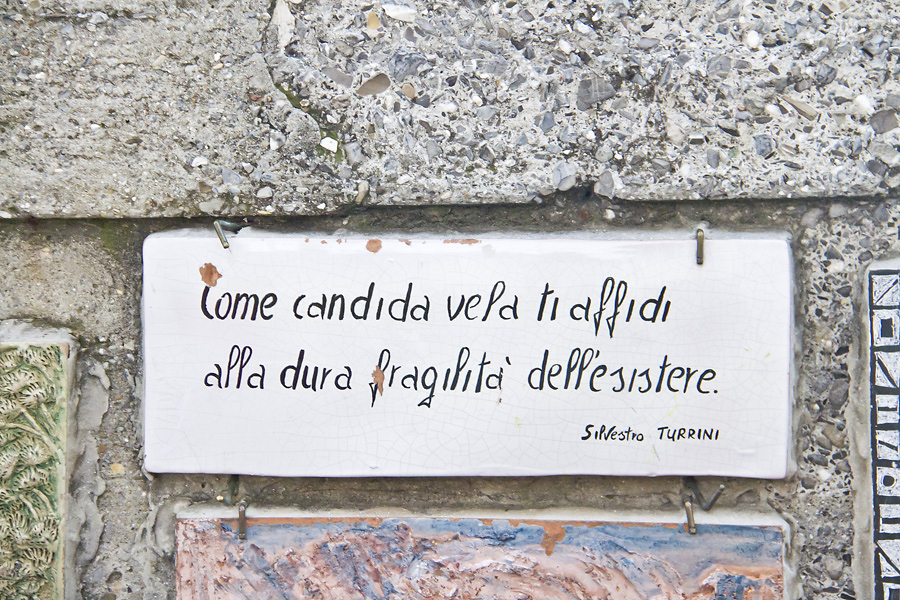 Come candida vela ti affidi
alla dura fragilità dell'esistere.
Silvestro TURRINI